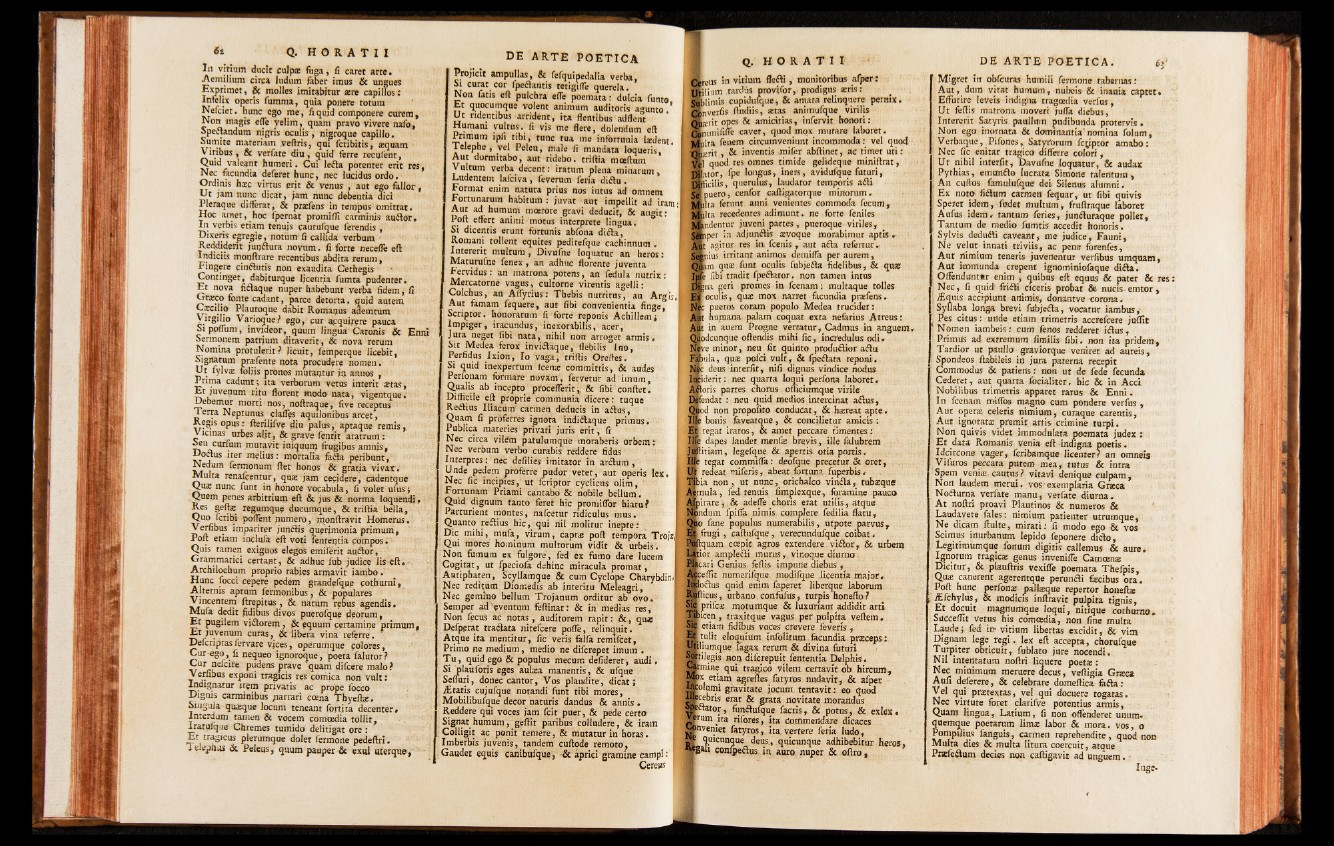 62 Q. HORATII
In vitium ducit culpæ fuga, ſi caret arte.
Aemilium circa ludum faber imus & ungues
Exprimet, & molles imitabitur ære capillos:
Infelix operis ſumma, quia ponere totum
Neſciet. hunc ego me, ſi quid componere curem,
Non magis eſſe velim, quam pravo vivere naſo,
Spectandum nigris oculis, nigroque capillo.
Sumite materiam veſtris, qui ſcribitis, æquam
Viribus, & verſate diu, quid ferre recuſent,
Quid valeant humeri. Cui lecta potenter erit res,
Nec facundia deſeret hunc, nec lucidus ordo.
Ordinis hæc virtus erit & venus, aut ego fallor,
Ut jam nunc dicat, jam nunc debentia dici
Pleraque differat, & præſens in tempus omittat.
Hoc amet, hoc ſpernat promiſſi carminis auctor.
In verbis etiam tenuis cautuſque ſerendis,
Dixeris egregie, notum ſi callida verbum
Reddiderit junctura novum. ſi forte neceſſe eſt
Indiciis monſtrare recentibus abdita rerum,
Fingere cinctutis non exaudita Cethegis
Continget, dabiturque licentia ſumta pudenter.
Et nova fictaque nuper habebunt verba fidem, ſi
Græco fonte cadant, parce detorta. quid autem
Cæcilio Plautoque dabit Romanus ademtum
Virgilio Varioque? ego, cur acquirere pauca
Si poſſum, invideor, quum lingua Catonis & Enni
Sermonem patrium ditaverit, & nova rerum
Nomina protulerit? licuit, ſemperque licebit,
Signatum præſente nota procudere nomen.
Ut ſylvæ foliis pronos mutantur in annos,
Prima cadunt; ita verborum vetus interit ætas,
Et juvenum ritu florent modo nata, vigentque.
Debemur morti nos, noſtraque, ſive receptus
Terra Neptunus claſſes aquilonibus arcet,
Regis opus: ſteriliſve diu palus, aptaque remis,
Vicinas urbes alit, & grave ſentit aratrum:
Seu curſum mutavit iniquum frugibus amnis,
Doctus iter melius: mortalia facta peribunt,
Nedum ſermonum ſtet honos & gratia vivax.
Multa renaſcentur, quæ jam cecidere, cadentque
Quæ nunc ſunt in honore vocabula, ſi volet uſus;
Quem penes arbitrium eſt & jus & norma loquendi.
Res geſtæ regumque ducumque, & triſtia bella,
Quo ſcribi poſſent numero, monſtravit Homerus.
Verſibus impariter junctis querimonia primum,
Poſt etiam incluſa eſt voti ſententia compos.
Quis tamen exiguos elegos emiſerit auctor,
Grammatici certant, & adhuc ſub judice lis eſt.
Archilochum proprio rabies armavit iambo.
Hunc ſocci cepere pedem grandeſque cothurni,
Alternis aptum ſermonibus, & populares
Vincentem ſtrepitus, & natum rebus agendis.
Muſa dedit fidibus divos pueroſque deorum,
Et pugilem victorem, & equum certamine primum,
Et juvenum curas, & libera vina referre.
Deſcriptas ſervare vices, operumque colores,
Cur ego, ſi nequeo ignoroque, poeta ſalutor?
Cur neſcire pudens prave quam diſcere malo?
Verſibus exponi tragicis res comica non vult:
Indignatur item privatis ac prope ſocco
Dignis carminibus narrari cœna Thyeſtæ.
Singula quæque locum teneant ſortita decenter.
Interdum tamen & vocem comœdia tollit,
Iratuſque Chremes tumido delitigat ore:
Et tragicus plerumque dolet ſermone pedeſtri.
Telephus & Peleus, quum pauper & exul uterque,
DE ARTE POETICA
Projicit ampullas, & ſeſquipedalia verba,
Si curat cor ſpectantis tetigiſſe querela.
Non ſatis eſt pulchra eſſe poemata: dulcia ſunto,
Et quocumque volent animum auditoris agunto.
Ut ridentibus arrident, ita flentibus adflent
Humani vultus. ſi vis me flere, dolendum eſt
Primum ipſi tibi, tunc tua me infortunia lædent.
Telephe, vel Peleu, male ſi mandata loqueris,
Aut dormitabo, aut ridebo. triſtia mœſtum
Vultum verba decent: iratum plena minarum,
Ludentem laſciva, ſeverum ſeria dictu.
Format enim natura prius nos intus ad omnem
Fortunarum habitum: juvat aut impellit ad iram:
Aut ad humum mœrore gravi deducit, & angit:
Poſt effert animi motus interprete lingua.
Si dicentis erunt fortunis abſona dicta,
Romani tollent equites peditefque cachinnum.
Intererit multum, Divuſne loquatur an heros:
Maturuſne ſenex, an adhuc florente juventa
Fervidus: an matrona potens, an ſedula nutrix:
Mercatorne vagus, cultorne virentis agelli:
Colchus, an Aſſyrius: Thebis nutritus, an Argis.
Aut famam ſequere, aut ſibi convenientia finge,
Scriptor. honoratum ſi forte reponis Achillem;
Impiger, iracundus, inexorabilis, acer,
Jura neget ſibi nata, nihil non arroget armis.
Sit Medea ferox invictaque, flebilis Ino,
Perfidus Ixion, Io vaga, triſtis Oreſtes.
Si quid inexpertum ſcenæ committis, & audes
Perſonam formare novam, ſervetur ad imum,
Qualis ab incepto proceſſerit, & ſibi conſtet.
Difficile eſt proprie communia dicere: tuque
Rectius Iliacum carmen deducis in actus,
Quam ſi proferres ignota indictaque primus.
Publica materies privati juris erit, ſi
Nec circa vilem patulumque moraberis orbem:
Nec verbum verbo curabis reddere fidus
Interpres: nec deſilies imitator in arctum,
Unde pedem proferre pudor vetet, aut operis lex.
Nec ſic incipies, ut ſcriptor cyclicus olim,
Fortunam Priami cantabo & nobile bellum.
Quid dignum tanto feret hic promiſſor hiatu?
Parturient montes, naſcetur ridiculus mus.
Quanto rectius hic, qui nil molitur inepte:
Dic mihi, muſa, virum, captæ poſt tempora Trojæ,
Qui mores hominum multorum vidit & urbeis.
Non fumum ex fulgore, ſed ex fumo dare lucem
Cogitat, ut ſpecioſa dehinc miracula promat,
Antiphaten, Scyllamque & cum Cyclope Charybdin.
Nec reditum Diomedis ab interitu Meleagri,
Nec gemino bellum Trojanum orditur ab ovo.
Semper ad eventum feſtinat: & in medias res,
Non ſecus ac notas, auditorem rapit: &, quæ
Deſperat tractata niteſcere poſſe, relinquit.
Atque ita mentitur, ſic veris falſa remiſcet,
Primo ne medium, medio ne diſcrepet imum.
Tu, quid ego & populus mecum deſideret, audi.
Si plauſoris eges aulæa manentis, & uſque
Seſſuri, donec cantor, Vos plaudite, dicat;
Ætatis cujuſque notandi ſunt tibi mores,
Mobilibuſque decor naturis dandus & annis.
Reddere qui voces jam ſcit puer, & pede certo
Signat humum, geſtit paribus colludere, & iram
Colligit ac ponit temere, & mutatur in horas.
Imberbis juvenis, tandem cuſtode remoto,
Gaudet equis canibuſque, & aprici gramine campi:
Cereus
Q. HORATII
Cereus in vitium flecti, monitoribus aſper:
Utilium tardus proviſor, prodigus æris:
Sublimis cupiduſque, & amata relinquere pernix.
Converſis ſtudiis, ætas animuſque virilis
Quærit opes & amicitias, inſervit honori:
Commiſiſſe cavet, quod mox mutare laboret.
Multa ſenem circumveniunt incommoda: vel quod
Quærit, & inventis miſer abſtinet, ac timet uti:
Vel quod res omnes timide gelideque miniſtrat,
Dilator, ſpe longus, iners, aviduſque futuri,
Difficilis, querulus, laudator temporis acti
Se puero, cenſor caſtigatorque minorum.
Multa ferunt anni venientes commoda ſecum,
Multa recedentes adimunt. ne forte ſeniles
Mandentur juveni partes, pueroque viriles,
Semper in adjunctis ævoque morabimur aptis.
Aut agitur res in ſcenis, aut acta refertur.
Segnius irritant animos demiſſa per aurem,
Quam quæ ſunt oculis ſubjecta fidelibus, & quæ
Ipſe ſibi tradit ſpectator. non tamen intus
Digna geri promes in ſcenam: multaque tolles
Ex oculis, quæ mox narret facundia præſens.
Nec pueros coram populo Medea trucidet:
Aut humana palam coquat exta nefarius Atreus:
Aut in auem Progne vertatur, Cadmus in anguem.
Quodcunque oſtendis mihi ſic, incredulus odi.
Neve minor, neu ſit quinto productior actu
Fabula, quæ poſci vult, & ſpectata reponi.
Nec deus interſit, niſi dignus vindice nodus
Inciderit: nec quarta loqui perſona laboret.
Actoris partes chorus officiumque virile
Defendat: neu quid medios intercinat actus,
Quod non propoſito conducat, & hæreat apte.
Ille bonis faveatque, & concilietur amicis:
Et regat iratos, & amet peccare timentes:
Ille dapes laudet menſæ brevis, ille ſalubrem
Juſtitiam, legeſque & apertis otia portis.
Ille tegat commiſſa: deoſque precetur & oret,
Ut redeat miſeris, abeat fortuna ſuperbis.
Tibia non, ut nunc, orichalco vincta, tubæque
Aemula, ſed tenuis ſimplexque, foramine pauco
Aſpirare, & adeſſe choris erat utilis, atque
Nondum ſpiſſa nimis complere ſedilia flatu,
Quo ſane populus numerabilis, utpote parvus,
Et frugi, caſtuſque, verecunduſque coibat.
Poſtquam cœpit agros extendere victor, & urbem
Latior amplecti murus, vinoque diurno
Placari Genius feſtis impune diebus,
Acceſſit numeriſque modiſque licentia major.
Indoctus quid enim ſaperet liberque laborum
Ruſticus, urbano confuſus, turpis honeſto?
Sic priſcæ motumque & luxuriam addidit arti
Tibicen, traxitque vagus per pulpita veſtem.
Sic etiam fidibus voces crevere ſeveris,
Et tulit eloquium inſolitum facundia præceps:
Utiliumque ſagax rerum & divina futuri
Sortilegis non diſcrepuit ſententia Delphis.
Carmine qui tragico vilem certavit ob hircum,
Mox etiam agreſtes ſatyros nudavit, & aſper
Incolumi gravitate jocum tentavit: eo quod
Illecebris erat & grata novitate morandus
Spectator, functuſque ſacris, & potus, & exlex.
Verum ita riſores, ita commendare dicaces
Conveniet ſatyros, ita vertere ſeria ludo,
Ne quicunque deus, quicunque adhibebitur heros,
Regali conſpectus in auro nuper & oſtro,
DE ARTE POETICA. 63
Migret in obſcuras humili ſermone tabernas:
Aut, dum vitat humum, nubeis & inania captet.
Effutire leveis indigna tragœdia verſus,
Ut feſtis matrona moveri juſſa diebus,
Intererit Satyris paullum pudibunda protervis.
Non ego inornata & dominantia nomina ſolum,
Verbaque, Piſones, Satyrorum ſcriptor amabo:
Nec ſic enitar tragico differre colori,
Ut nihil interſit, Davuſne loquatur, & audax
Pythias, emuncto lucrata Simone talentum,
An cuſtos famuluſque dei Silenus alumni.
Ex noto fictum carmen ſequar, ut ſibi quivis
Speret idem, ſudet multum, fruſtraque laboret
Auſus idem. tantum ſeries, juncturaque pollet,
Tantum de medio ſumtis accedit honoris.
Sylvis deducti caveant, me judice, Fauni,
Ne velut innati triviis, ac pene forenſes,
Aut nimium teneris juvenentur verſibus umquam,
Aut immunda crepent ignominioſaque dicta.
Offenduntur enim, quibus eſt equus & pater & res:
Nec, ſi quid fricti ciceris probat & nucis emtor,
Æquis accipiunt animis, donantve corona.
Syllaba longa brevi ſubjecta, vocatur iambus,
Pes citus: unde etiam trimetris accreſcere juſſit
Nomen iambeis: cum ſenos redderet ictus,
Primus ad extremum ſimilis ſibi. non ita pridem,
Tardior ut paullo graviorque veniret ad aureis,
Spondeos ſtabileis in jura paterna recepit
Commodus & patiens: non ut de ſede ſecunda
Cederet, aut quarta ſocialiter. hic & in Acci
Nobilibus trimetris apparet rarus & Enni.
In ſcenam miſſos magno cum pondere verſus,
Aut operæ celeris nimium, curaque carentis,
Aut ignoratæ premit artis crimine turpi.
Non quivis videt immodulata poemata judex:
Et data Romanis venia eſt indigna poetis.
Idcircone vager, ſcribamque licenter? an omneis
Viſuros peccata putem mea, tutus & intra
Spem veniæ cautus? vitavi denique culpam,
Non laudem merui. vos exemplaria Græca
Nocturna verſate manu, verſate diurna.
At noſtri proavi Plautinos & numeros &
Laudavere ſales: nimium patienter utrumque,
Ne dicam ſtulte, mirati: ſi modo ego & vos
Scimus inurbanum lepido ſeponere dicto,
Legitimumque ſonum digitis callemus & aure.
Ignotum tragicæ genus inveniſſe Camœnæ
Dicitur, & plauſtris vexiſſe poemata Theſpis,
Quæ canerent agerentque peruncti fæcibus ora.
Poſt hunc perſonæ pallæque repertor honeſtæ
Æſchylus, & modicis inſtravit pulpita tignis,
Et docuit magnumque loqui, nitique cothurno.
Succeſſit vetus his comœdia, non ſine multa
Laude; ſed in vitium libertas excidit, & vim
Dignam lege regi. lex eſt accepta, choruſque
Turpiter obticuit, ſublato jure nocendi.
Nil intentatum noſtri liquere poetæ:
Nec minimum meruere decus, veſtigia Græca
Auſi deſerere, & celebrare domeſtica facta:
Vel qui prætextas, vel qui docuere togatas.
Nec virtute foret clariſve potentius armis,
Quam lingua, Latium, ſi non offenderet unum-
quemque poetarum limæ labor & mora. vos, o
Pompilius ſanguis, carmen reprehendite, quod non
Multa dies & multa litura coercuit, atque
Præfectum decies non caſtigavit ad unguem.
Inge-